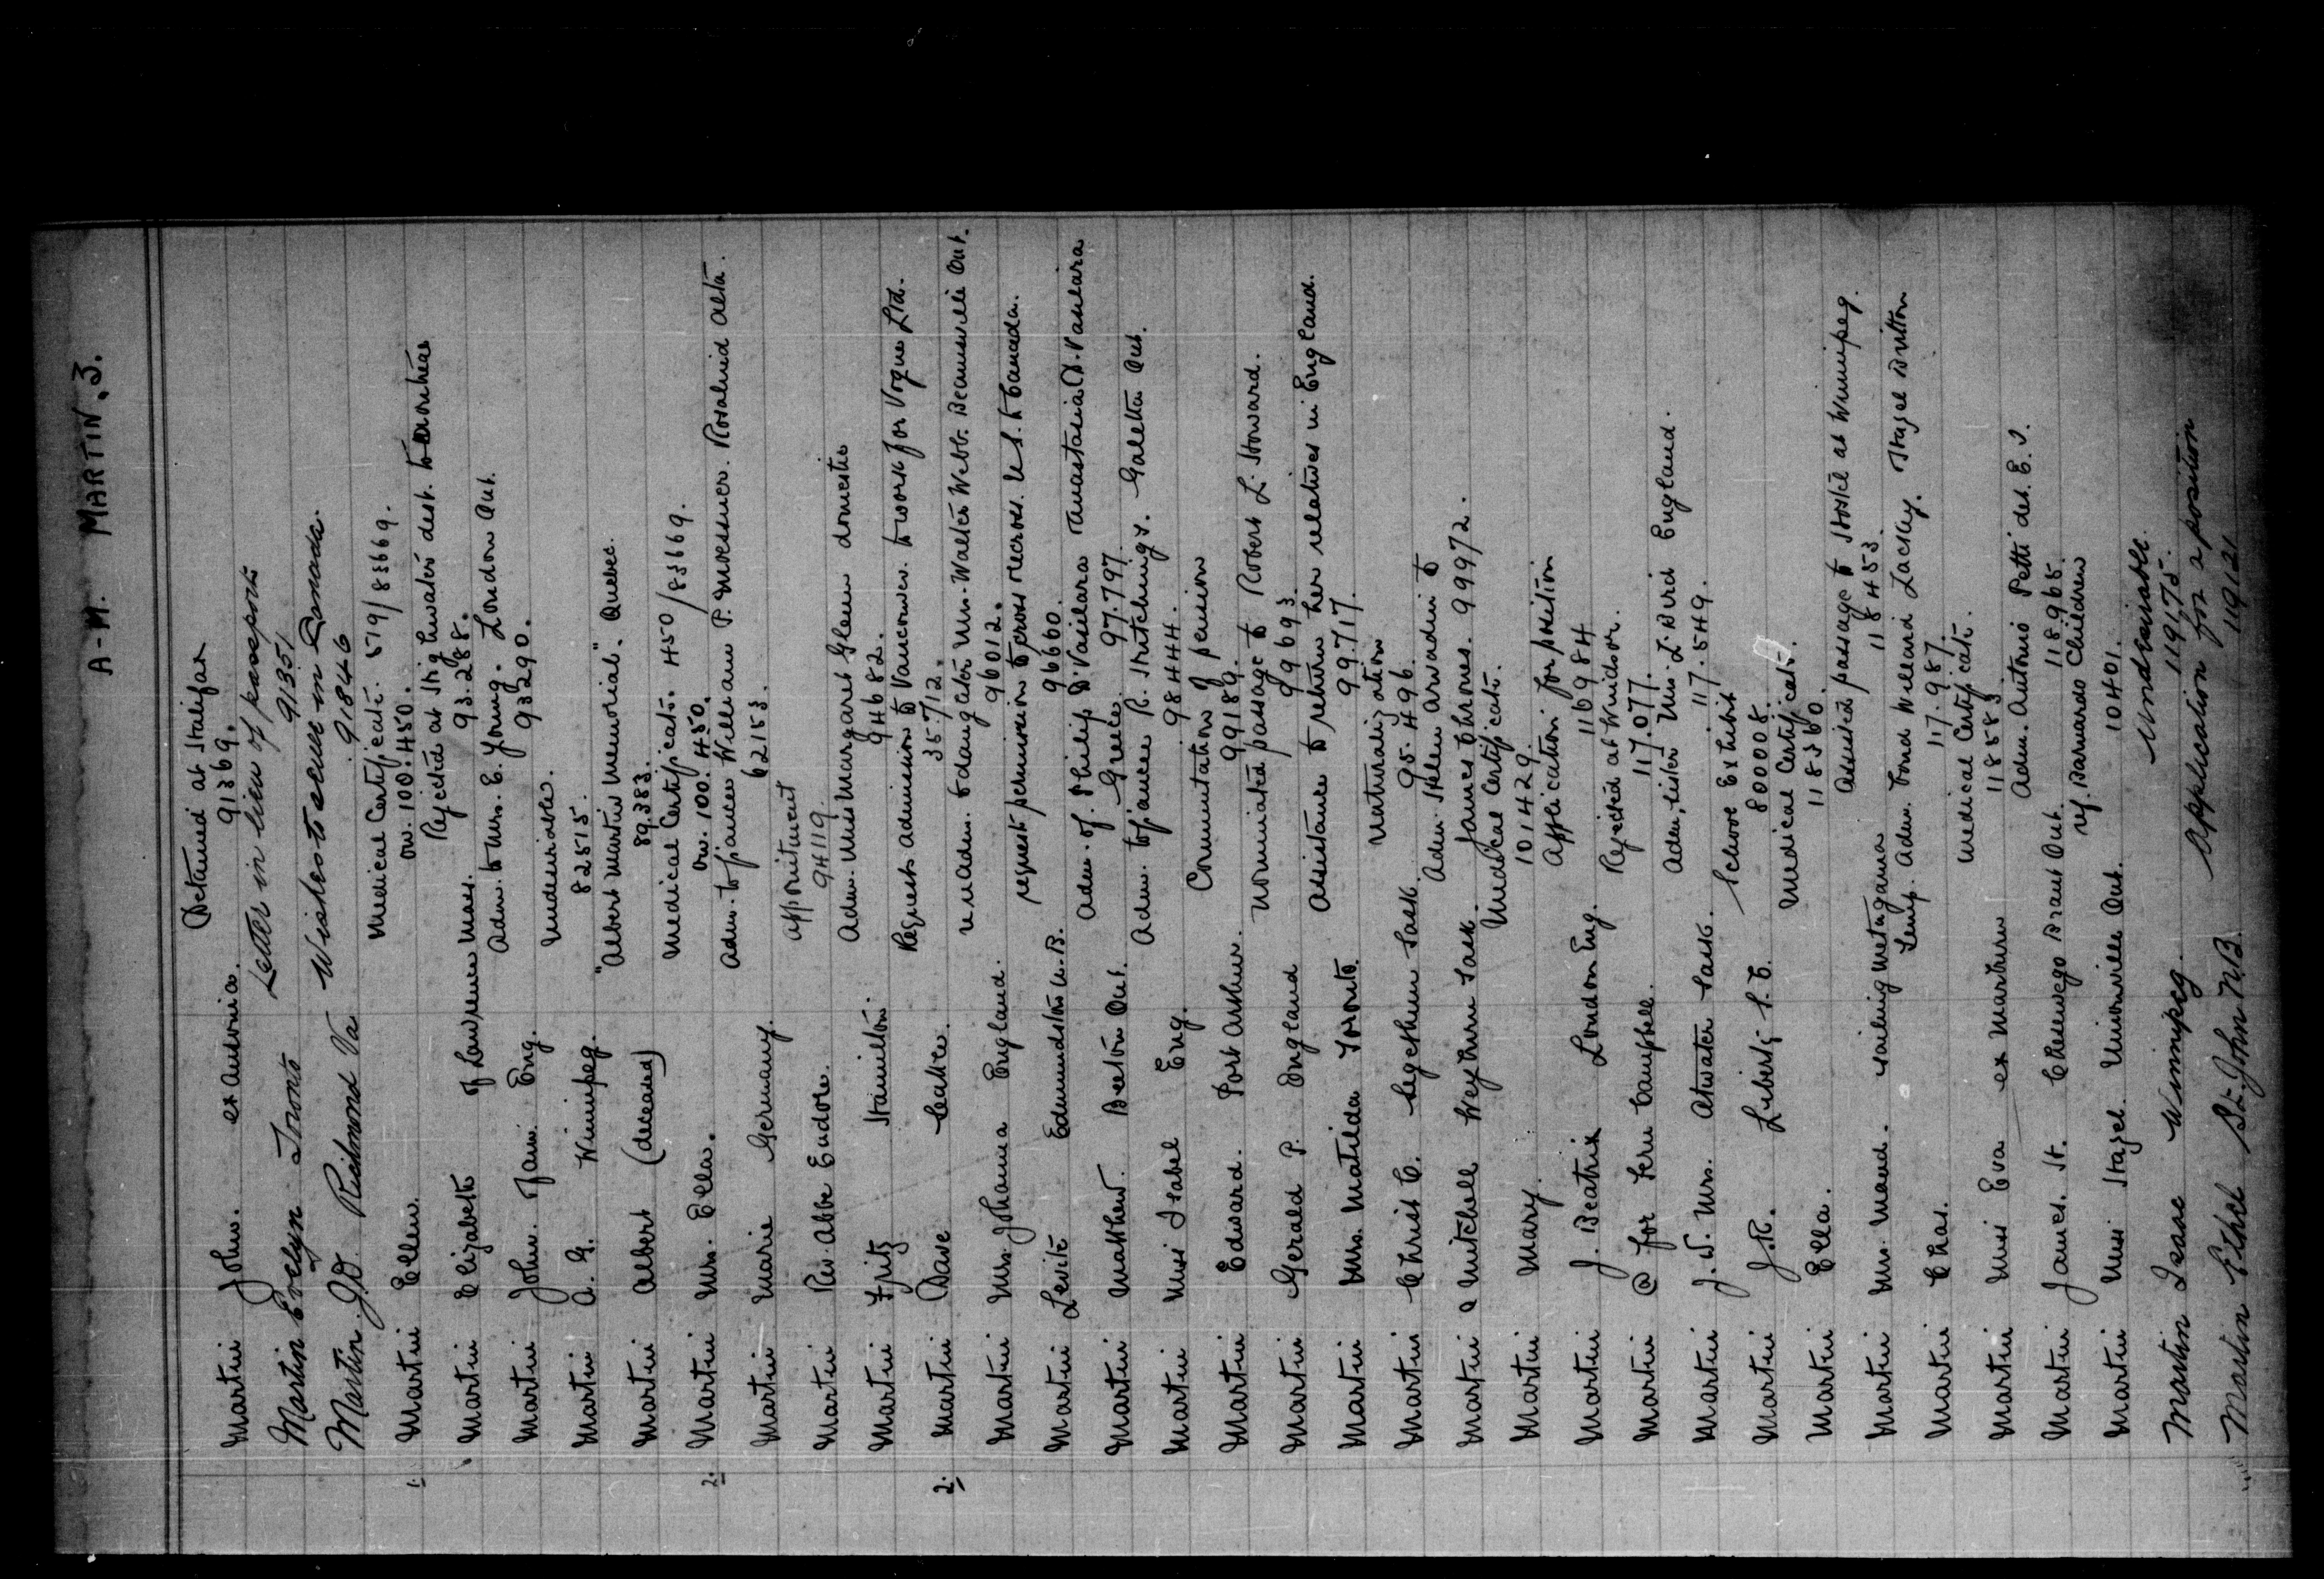 A-M. MARTIN. 3.
Martin John. ex Ausonia. Detained at Halifax
91369.
Martin Evelyn Toronto Letter in lieu of passports
91351
Martin J.D. Richmond Va. Wishes to settle in Canada.
91846
1. Martin Ellen. Medical Certificate. 579/83669.
Ow. 100.450.
Martin Elizabeth of Lawrence Mass. Rejected at Highwater dest.
93.288.
Martin John. Jani. Eng. Adm. to Mrs. E. Young. London Ont.
93290.
Martin A. G. Winnipeg. Undesirable.
82515.
Martin Albert (deceased) "Albert Martin Memorial". Quebec.
89.383.
2. Martin Mrs. Ella. Medical Certificate. 450/83669.
Ow. 100.450.
Martin Marie Germany. Adm. to fiancee William P. Moessner. Rosalind Alta.
62153.
Martin Rev. Abbe Eudore. appointment
94119.
Martin Fritz Hamilton. Adm. Miss Margaret Glenn domestic
94682.
2. Martin Dave Calkco. Request admission to Vancouver. to work for Vogue Ltd.
35712.
Martin Mrs. Johanna England. re adm. to daughter Mrs. Walter Webb. Beamsville Ont.
96012.
Martin Levite Edmundston N.B. request permission to cross recross U.S. to Canada.
96660.
Martin Matthew. Beeton Ont. Adm. of Philip D. Vasilara Anastasia D. Vasilara
Greece. 97.797.
Martin Miss Isabel Eng. Adm. to fiancee R. Hutchings. Galetta Ont.
98444.
Martin Edward. Port Arthur. Commutation of pension
99189.
Martin Gerald P. England Nominated passage to Robert L. Howard.
99693.
Martin Mrs. Matilda Toronto. Assistance to return her relatives in England.
99.717.
Martin Christ C. Legethun Sask. Naturalization
95.496.
Martin & Mitchell Weyburn Sask. Adm. Helen Arwadini to
James Chrones. 99972.
Martin Mary. Medical Certificate.
101429.
Martin J. Beatrix London Eng. Application for position
116984
Martin @ for Fern Campbell. Rejected at Windsor.
117.077.
Martin J. N. Mrs. Atwater Sask. Adm. sister Miss L. Bird England.
117.549.
Martin J.R. Liberty S.C. School Exhibit
800008.
Martin Ella. Medical Certificate.
118360.
Martin Mrs. Maud. sailing Metagama Assisted passage to Hostel at Winnipeg.
118453.
Martin Chas. Temp. Adm. Ford Willard Lackey. Hazel Britton
117.987.
Martin Miss Eva ex Marburn Medical Certificate.
118583.
Martin James. St. Chedewego Brant Ont. Adm. Antonio Petti det. E.I.
118965.
Martin Miss Hazel. Unionville Ont. re. Barnardo Children
10401.
Martin Isaac Winnipeg. Undesirable.
119175.
Martin Ethel St. John N.B. Application for a position
119121